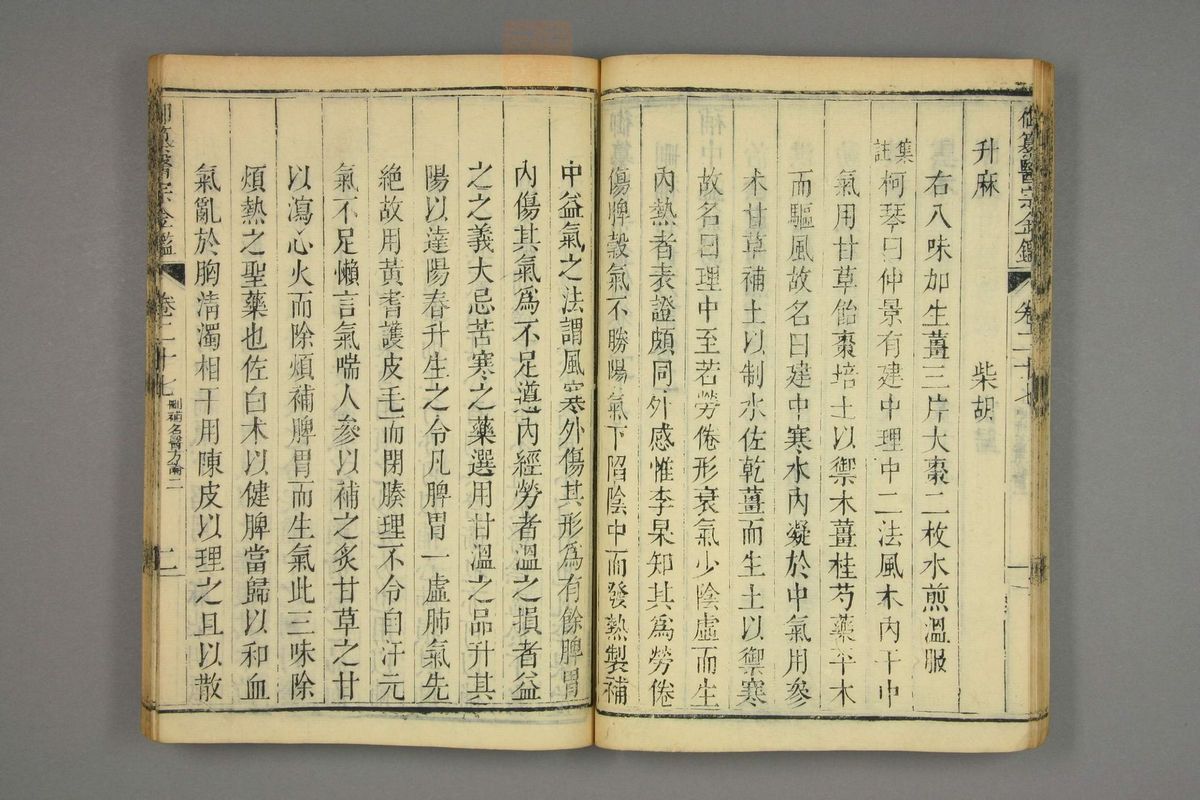 御纂醫宗金鑑 卷二十七
升麻 柴胡
右八味加生薑三片大棗二枚水煎溫服
集註柯琴曰仲景有建中理中二法風木內干中
氣用甘草飴棗培土以禦木薑桂芍藥平木
而驅風故名曰建中寒水內凝於中氣用參
朮甘草補土以制水佐乾薑而生土以禦寒
故名曰理中至若勞倦形衰氣少陰虛而生
內熱者表證頗同外感惟李杲知其為勞倦
傷脾穀氣不勝陽氣下陷陰中而發熱製補
中益氣之法謂風寒外傷其形為有餘脾胃
內傷其氣為不足遵內經勞者溫之損者益
之之義大忌苦寒之藥選用甘溫之品升其
陽以達陽春升生之令凡脾胃一虛肺氣先
絕故用黃耆護皮毛而閉腠理不令自汗元
氣不足懶言氣喘人參以補之炙甘草之甘
以瀉心火而除煩補脾胃而生氣此三味除
煩熱之聖藥也佐白朮以健脾當歸以和血
氣亂於胸清濁相干用陳皮以理之且以散
御纂醫宗金鑑 卷二十七 刪補名醫方論二 二